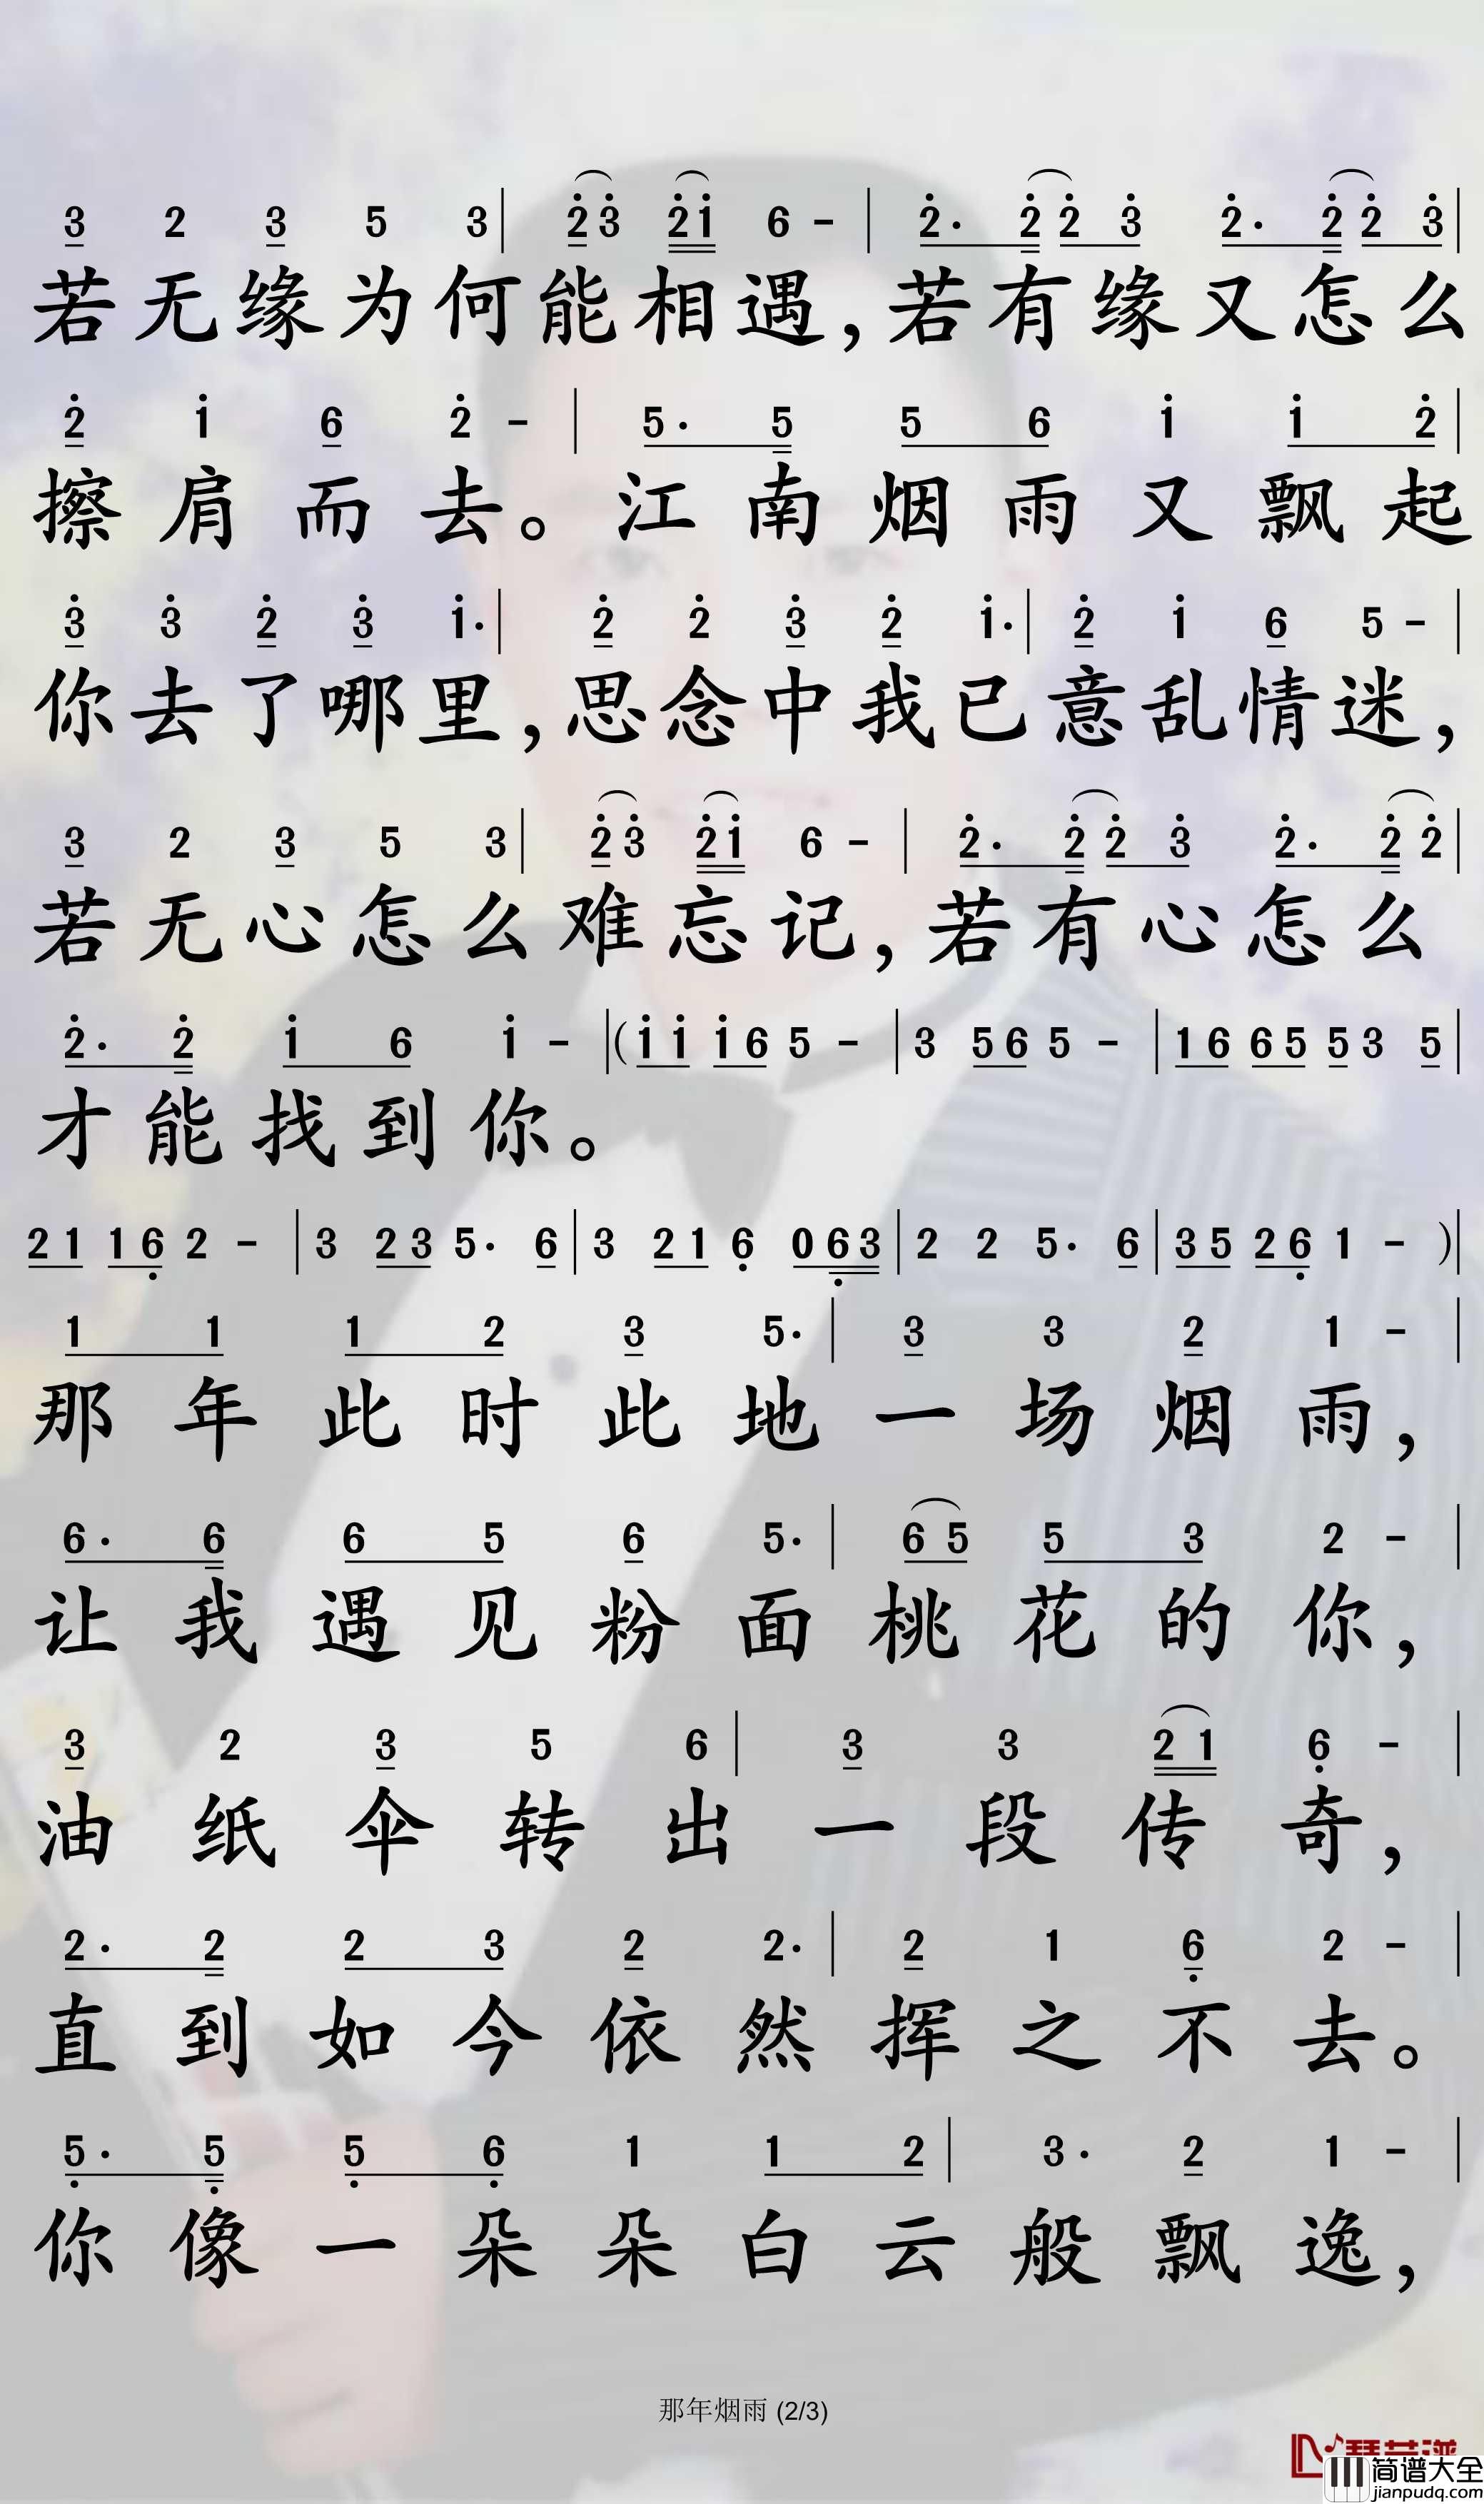 3 2 3 5 3 | 2 3 2 1 6 - | 2· 2 2 3 2· 2 2 3 |
若无缘为何能相遇,若有缘又怎么
2 1 6 2 - | 5· 5 5 6 1 1 2 |
擦肩而去。江南烟雨又飘起
3 3 2 3 1· | 2 2 3 2 1· | 2 1 6 5 - |
你去了哪里,思念中我已意乱情迷,
3 2 3 5 3 | 2 3 2 1 6 - | 2· 2 2 3 2· 2 2 |
若无心怎么难忘记,若有心怎么
2· 2 1 6 1 - | (1 1 1 6 5 - | 3 5 6 5 - | 1 6 6 5 5 3 5 |
才能找到你。
2 1 1 6 2 - | 3 2 3 5· 6 | 3 2 1 6 0 6 3 | 2 2 5· 6 | 3 5 2 6 1 - ) |
1 1 1 2 3 5· | 3 3 2 1 - |
那年此时此地一场烟雨,
6· 6 6 5 6 5· | 6 5 5 3 2 - |
让我遇见粉面桃花的你,
3 2 3 5 6 | 3 3 2 1 6 - |
油纸伞转出一段传奇,
2· 2 2 3 2 2· | 2 1 6 2 - |
直到如今依然挥之不去。
5· 5 5 6 1 1 2 | 3· 2 1 - |
你像一朵朵白云般飘逸,
那年烟雨 (2/3)
简谱大全
jianpudq.com